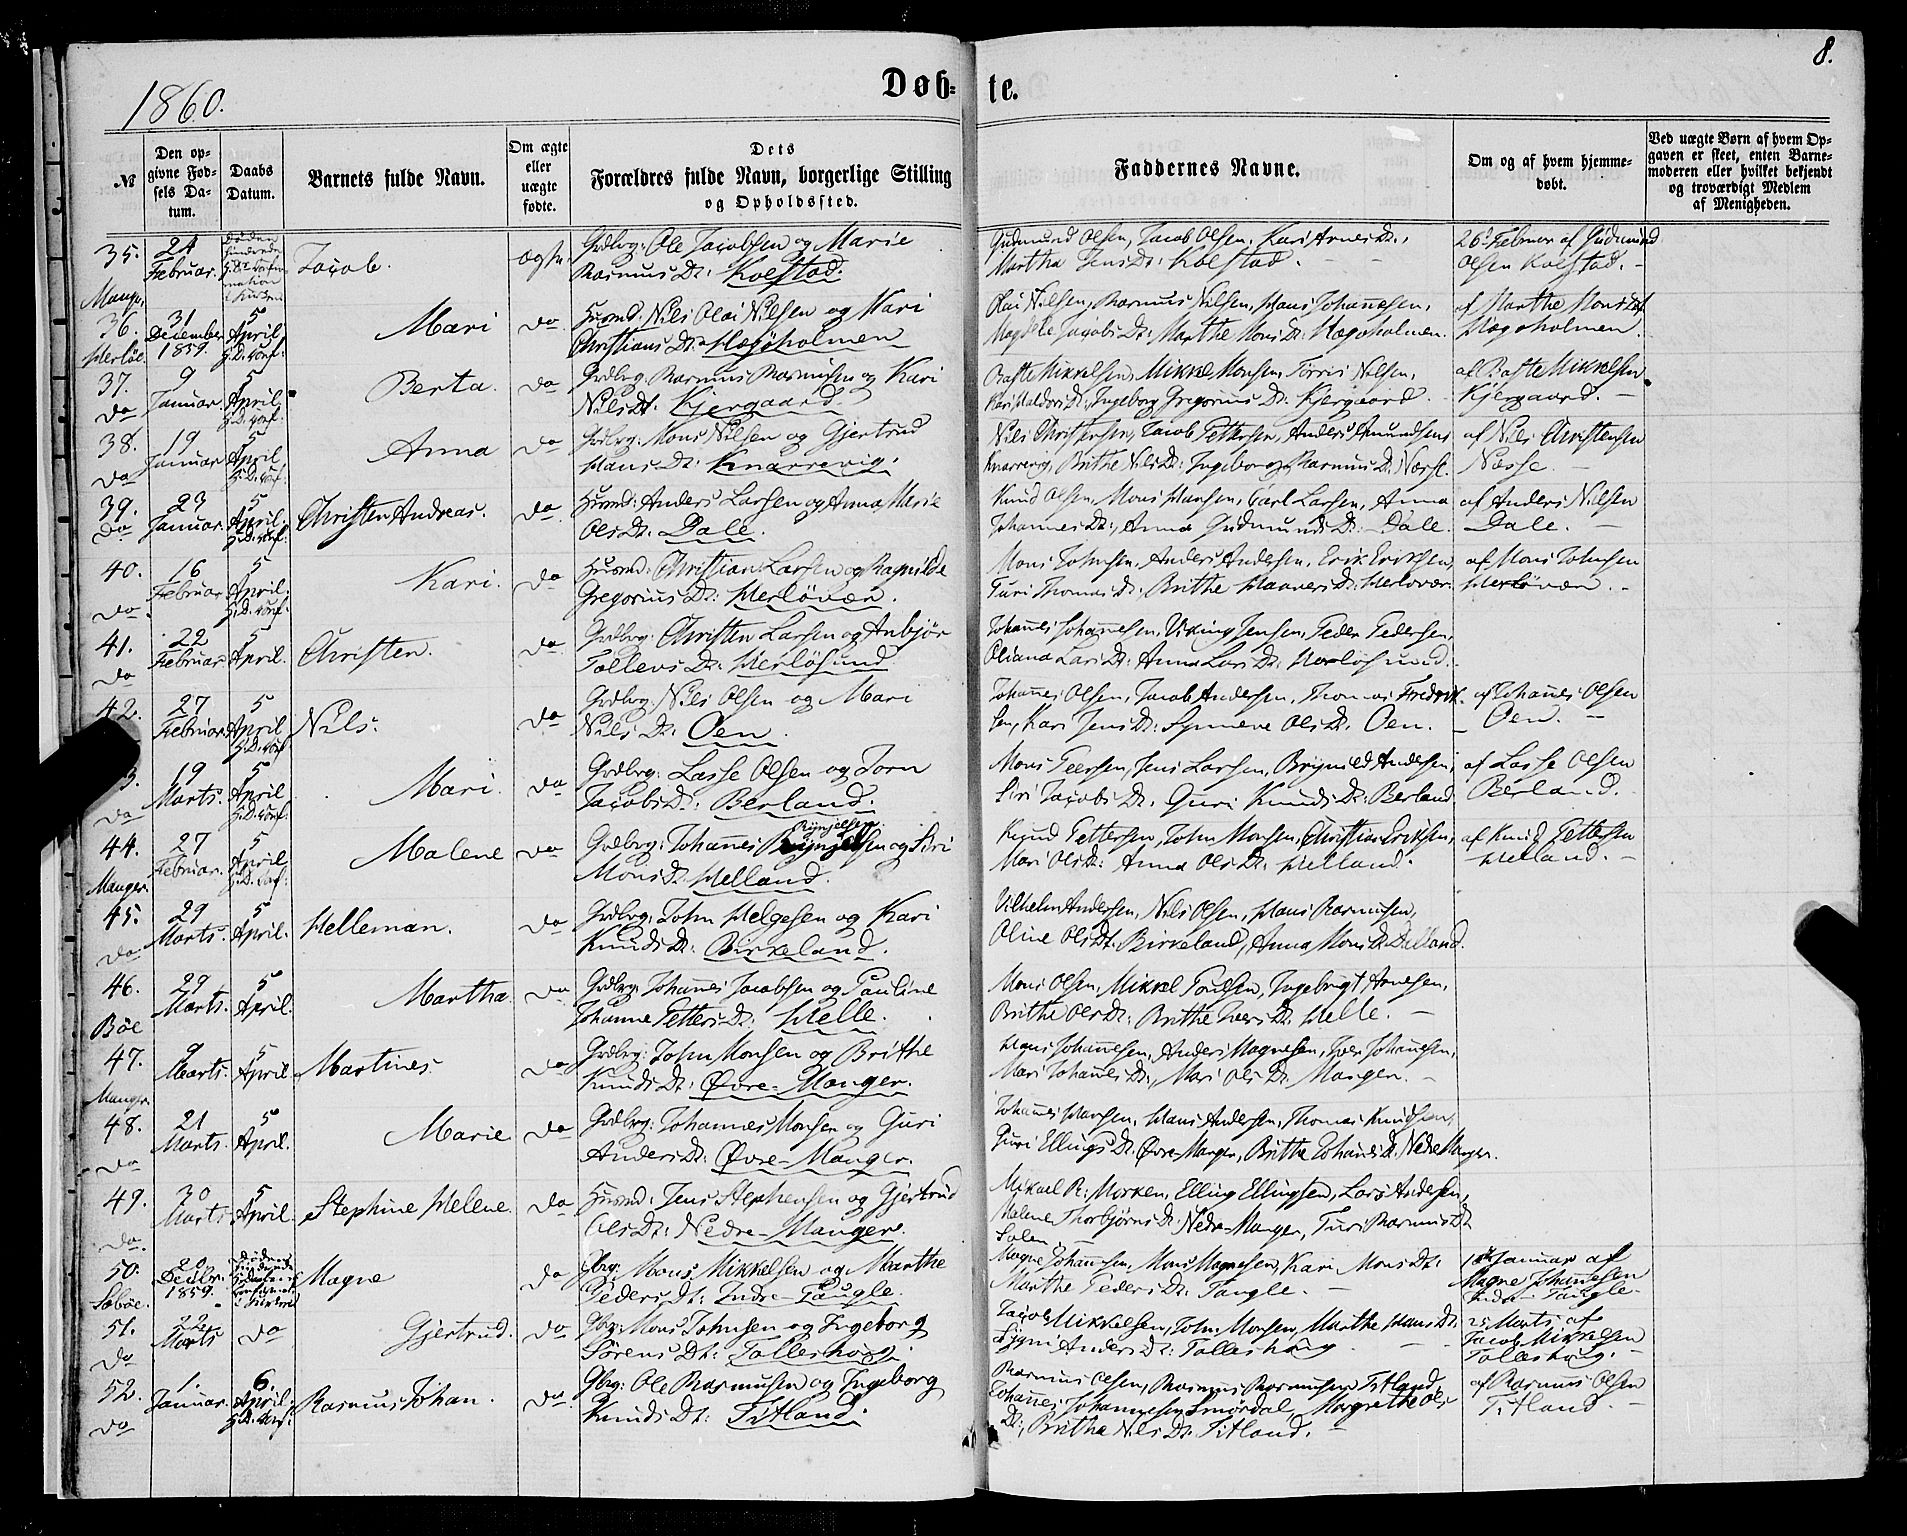 8.
1860.
Døb= te.
№
Den op-
givne Fød-
sels Da-
tum.
Daabs
Datum.
Barnets fulde Navn.
Om ægte
eller
uægte
fødte.
Dets
Forældres fulde Navn, borgerlige Stilling
og Opholdssted.
Faddernes Navne.
Om og af hvem hjemme-
døbt.
Ved uægte Børn af hvem Op-
gaven er skeet, enten Barne-
moderen eller hvilket bekjendt
og troværdigt Medlem
af Menigheden.
35. Manger 24 Februar. Jacob. ægte.
Grdbrg: Ole Jacobsen og Marie
Rasmus Dt: Kolstad.
Gudmund Olsen, Jacob Olsen, Kari Arnes Dt:,
Martha Jens Dt: Kolstad.
26 Februar af Gudmund
Olsen Kolstad.
36. Herløe. 31 December 1859. 5 April H.D. Conf: Mari do
Husmd: Nils Olai Nilsen og Kari
Christians Dt: Hægøholmen
Olai Nilsen, Rasmus Nilsen, Hans Johannesen,
Jacobs Dt: Marthe Mons Dt: Hægøholmen.
af Marthe Mons Dt:
Hægøholmen.
37. do 9 Januar. 5 April. H.D. Conf: Berta. do
Grdbrg: Rasmus Rasmusen og Kari
Nils Dt: Kjergaard
Baste Mikkelsen, Mikkel Monsen, Torris Nilsen,
Kari Haldors Dt: Ingeborg Gregorius Dt: Kjergaard.
af Baste Mikkelsen
Kjergaard.
38. do 19 Januar. 5 April H.D. Conf: Anna do
Grdbrg: Mons Nilsen og Gjertrud
Hans Dt: Knarrevig.
Nils Christensen, Jacob Pettersen, Anders Amundsen
Knarrevig, Brithe Nils Dt: Ingeborg Rasmus Dt: Næsse.
af Nils Christensen
Næsse.
39. do 23 Januar. 5 April. H.D. Conf: Christen Andreas. do
Husmd: Anders Larsen og Anna Marie
Ols Dt: Dale.
Knud Olsen, Mons Hansen, Carl Larsen, Anna
Johannes Dt:, Anna Gudmunds Dt: Dale.
af Anders Nilsen
Dale.
40. do. 16 Februar 5 April. H.D. Conf: Kari. do
Husmd: Christian Larsen og Ragnilde
Gregorius Dt: Herløvær.
Mons Johnsen, Anders Andersen, Erik Eriksen,
Turi Thomas Dt: Brithe Haavers Dt: Herløvær.
af Mons Johnsen
Herløvær.
41. do 22 Februar 5 April. Christen. do
Grdbrg: Christen Larsen og Anbjør
Tollevs Dt: Herløsund
Johannes Johannesen, Viking Jensen, Peder Pedersen,
Oliana Lars Dt: Anna Lars Dt: Herløsund.
42. 27 Februar. 5 April H.D. Conf: Nils. do
Grdbrg: Nils Olsen og Mari
Nils Dt: Oen.
Johannes Olsen, Jacob Andersen, Thomas Fredrik-
sen, Kari Jens Dt: Synneve Ols Dt: Oen.
af Johannes Olsen
Oen.
do 19 Marts. 5 April H.D. Conf: Mari. do
Grdbrg: Lasse Olsen og Jorn
Jacobs Dt: Berland.
Mons Peersen, Jens Larsen, Brynild Andersen,
Siri Jacobs Dt. Guri Knuds Dt: Berland
af Lasse Olsen
Berland.
44. Manger. 27 Februar. 5 April H.D. Conf: Malene do
Rynjelsen
Grdbrg: Johannes og Siri
Mons Dt. Helland.
Knud Pettersen, John Monsen, Christian Eriksen,
Mari Ols Dt: Anna Ols Dt: Helland.
af Knud Pettersen
Helland.
45. do 29 Marts. 5 April. Helleman. do
Grdbrg: John Helgesen og Kari
Knuds Dt: Birkeland.
Vilhelm Andersen, Nils Olsen, Hans Rasmusen,
Oline Ols Dt. Birkeland, Anna Mons Dt. Helland.
46. Bøe 29 Marts. 5 April. Martha. do
Grdbrg: Johannes Jacobsen og Pauline
Johanne Petters Dt: Helle.
Mons Olsen, Mikkel Poulsen, Ingebrigt Arnesen,
Brithe Ols Dt: Brithe Ivers Dt: Helle.
47. Manger. 9 Marts. 5 April Martines do
Grdbrg: John Monsen og Brithe
Knuds Dt: Øvre-Manger.
Hans Johannesen, Anders Magnesen, Iver Johannesen,
Mari Johannes Dt., Mari Ols Dt. Manger.
48. do 21 Marts. 5 April. Marie do
Grdbrg: Johannes Monsen og Guri
Anders Dt: Øvre-Manger.
Johannes Hansen, Hans Andersen, Thomas Knudsen,
Guri Ellings Dt. Øvre-Manger, Brithe Johannes Dt. Nedre Manger.
49. do. 30 Marts 5 April. Stephine Helene. do
Husmd: Jens Stephensen og Gjertrud
Ols Dt: Nedre-Manger.
Mikael R: Morken, Elling Ellingsen, Lars Andersen,
Malene Thorbjørns Dt. Nedre-Manger, Turi Rasmus Dt
50. Sæbøe. Decbr. 1859. Magne do
Gbrg: Mons Mikkelsen og Marthe
Peders Dt: Indre-Tougle.
Magne Johannesen, Mons Magnesen, Kari Mons Dt:
Marthe Peders Dt: Tougle.
Januar af
Magne Johannesen
Indre Tougle.
51. do 22 Marts do Gjertrud. do
Gbrg: Mons Johnsen og Ingeborg
Sørens Dt: Tolleshoug.
Jacob Mikkelsen, John Monsen, Marthe Hans Dt.
Anders Dt: Tolleshoug.
25 Marts af
Jacob Mikkelsen
Tolleshoug.
52. do 1. Januar. 6. April. H.D. Conf: Rasmus Johan. do
Gbrg: Ole Rasmusen og Ingeborg
Knuds Dt: Titland.
Rasmus Olsen, Rasmus Rasmusen Titland,
Johannes Johannesen Smørdal, Margrethe Ols
Dt:, Brithe Nils Dt. Titland.
af Rasmus Olsen
Titland.